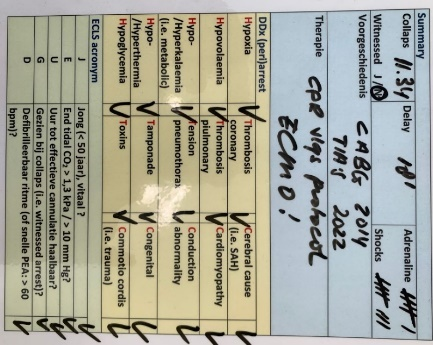 Summary
Collaps 11.34 Delay 18' Adrenaline
Witnessed J / N Shocks
Voorgeschiedenis CABG 2014
TIA's 2022
Therapie CPR vlgs protocol
ECMO!
DDx (peri)arrest
Hypoxia Thrombosis coronary Cerebral cause (i.e. SAH)
Hypovolaemia Thrombosis plulmonary Cardiomyopathy
Hypo-/Hyperkalaemia (i.e. metabolic) Tension pneumothorax Conduction abnormality
Hypo-/Hyperthermia Tamponade Congenital
Hypoglycemia Toxins Commotio cordis (i.e. trauma)
ECLS acronym
J Jong (< 50 jaar), vitaal ?
E End tidal CO₂ > 1,3 kPa / > 10 mm Hg?
U Uur tot effectieve cannulatie haalbaar?
G Gezien bij collaps (i.e. witnessed arrest)?
D Defibrilleerbaar ritme (of snelle PEA: > 60 bpm)?